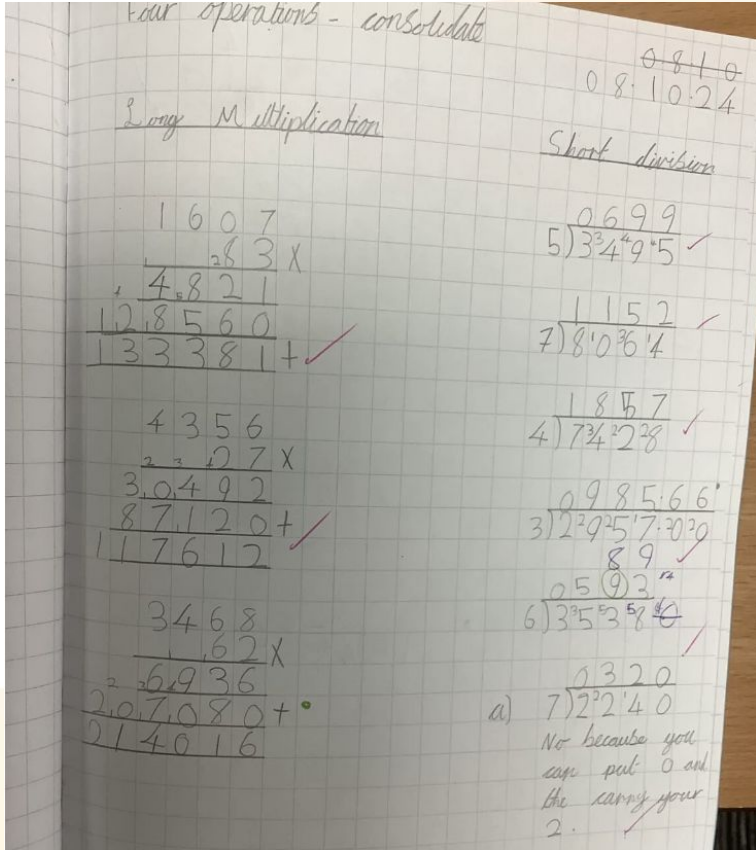 Four operations - consolidate
0810
08.10.24
Long Multiplication
1607
83 x
4821
128560
133381 +
4356
27 x
30492
87120 +
117612
3468
62 x
6936
207080 +
214016
Short division
0699
5)3³4⁴9⁴5
1152
7)8¹0³6¹4
1857
4)7³4²2²8
0985.66
3)2²9²5¹7.²0²0
89
0593 r4
6)3³5⁵3⁵8
0320
a) 7)2²2¹40
No because you
can put 0 and
the carry your
2.